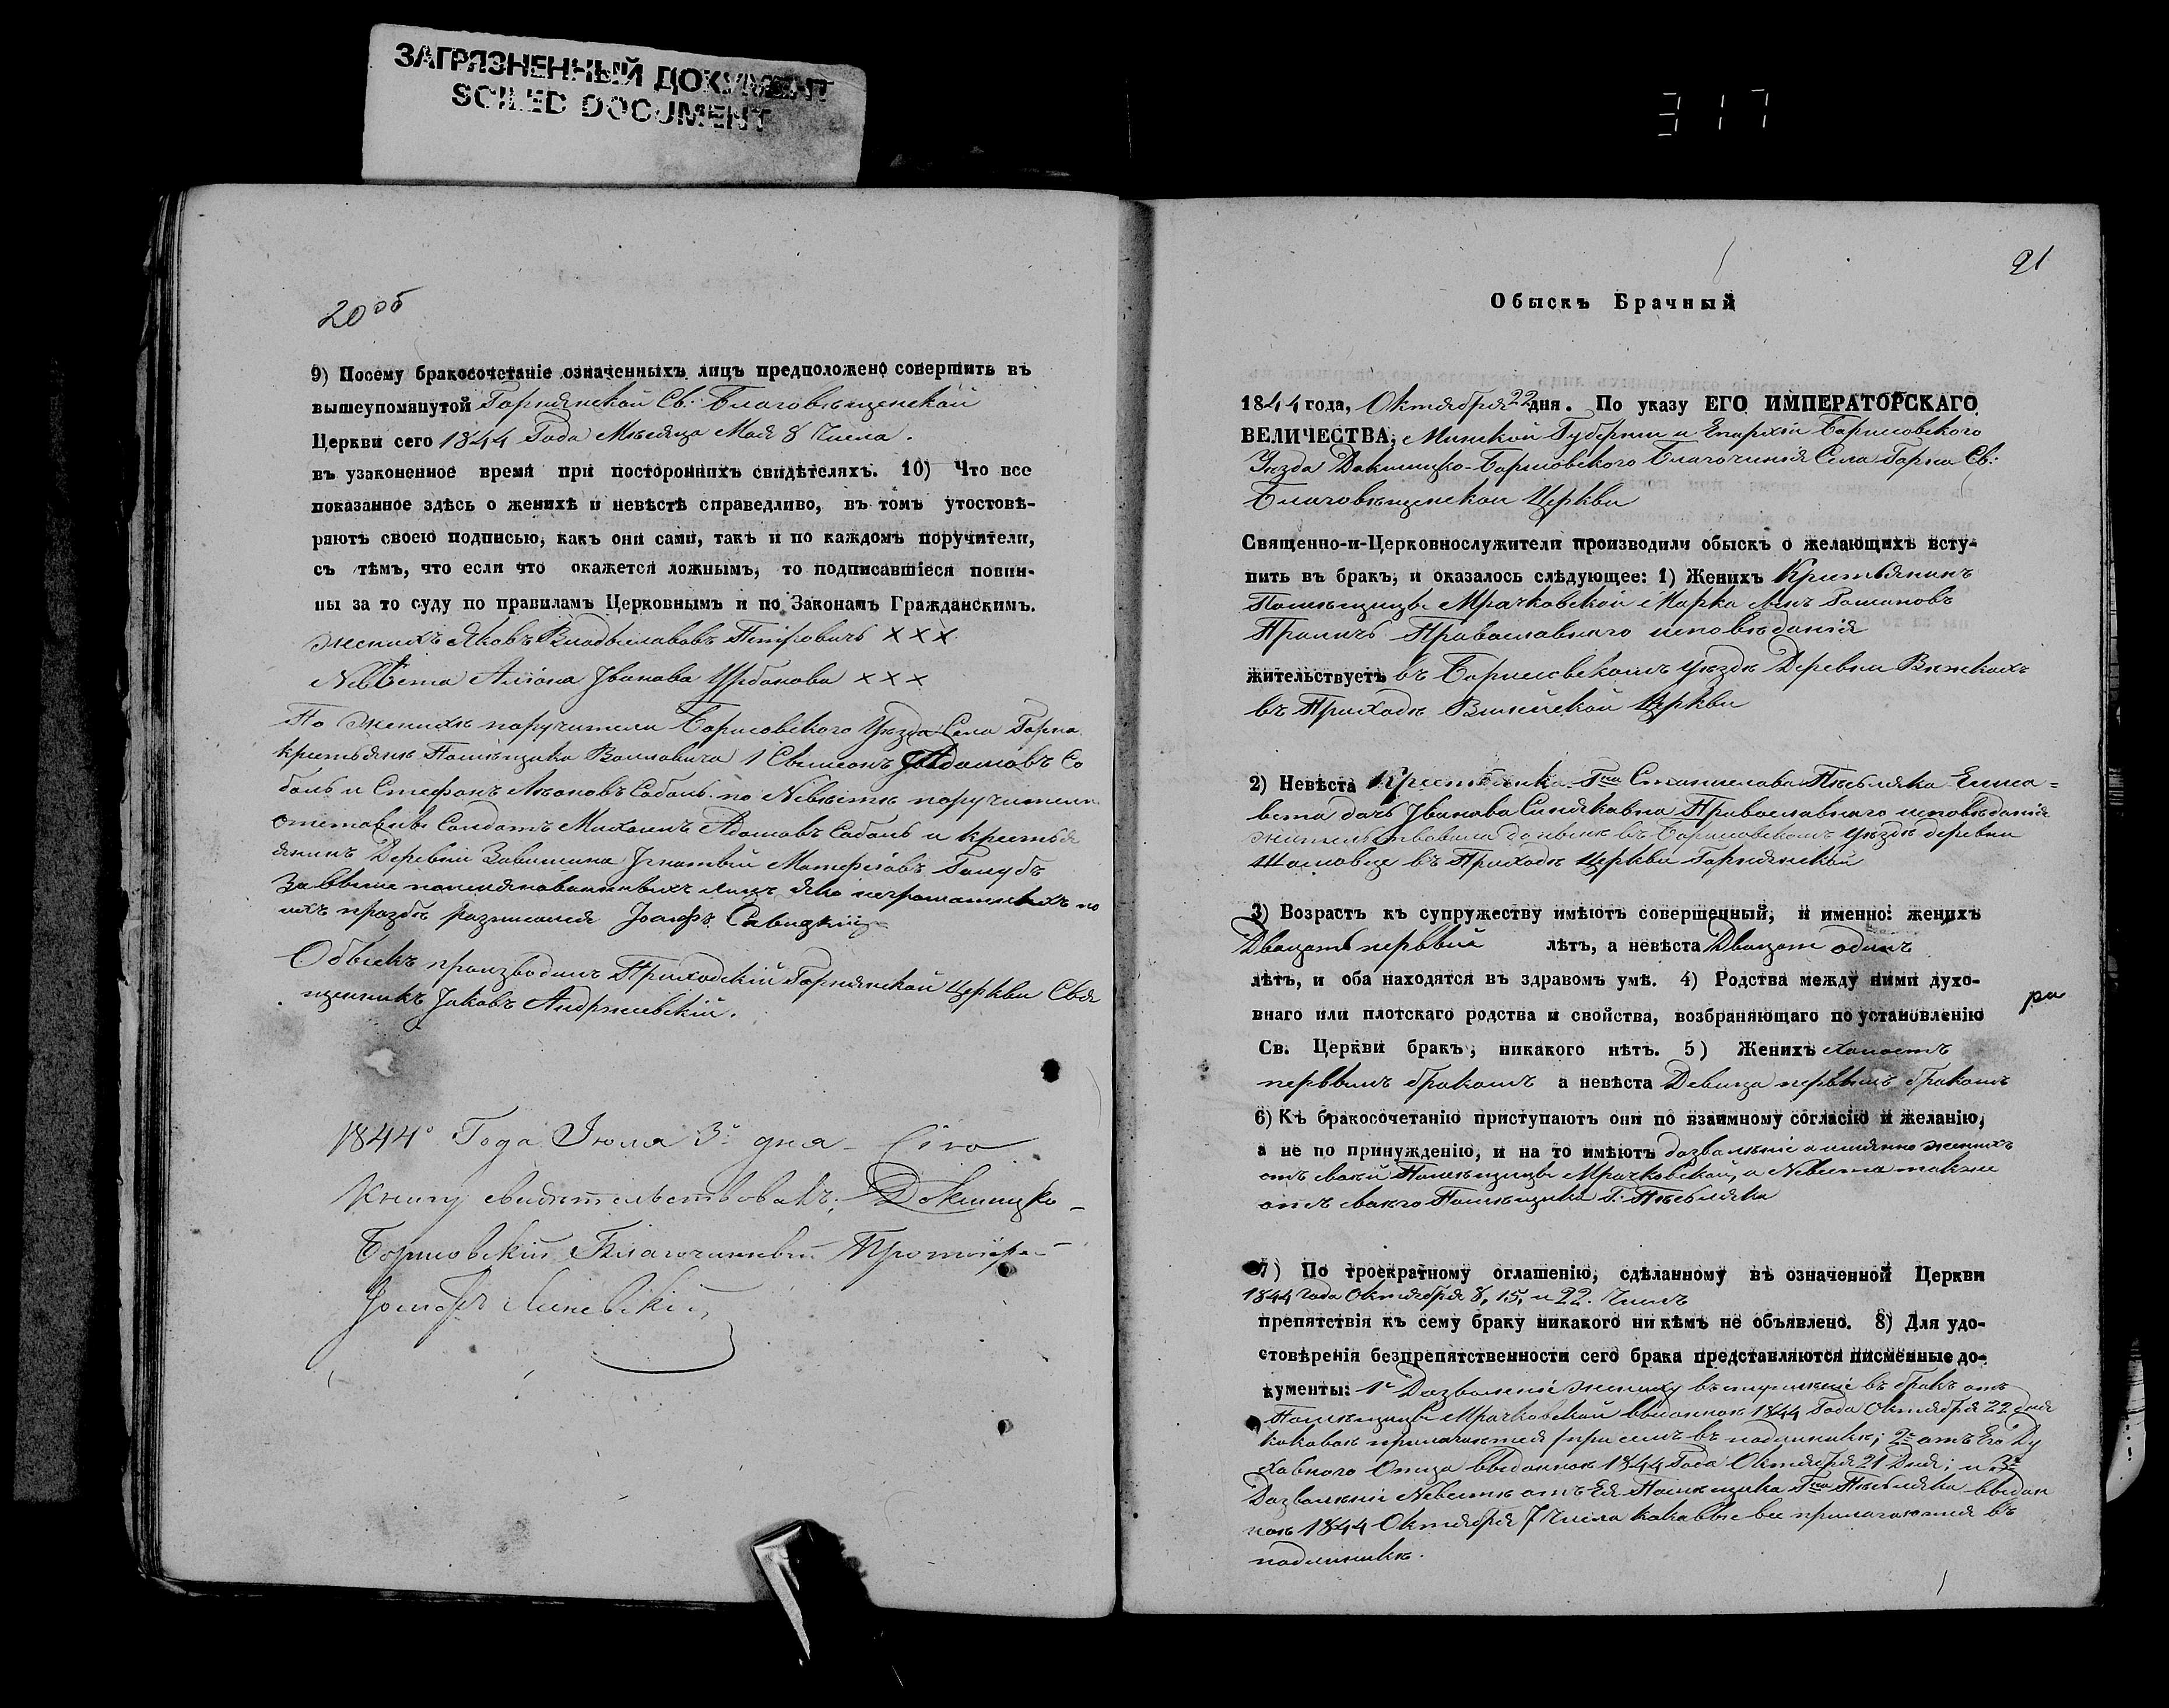 ЗАГРЯЗНЕННЫЙ ДОКУМЕНТ
SOILED DOCUMENT
317
20 об
9) Посему бракосочетаніе означенныхъ лицъ предположено совершить въ
вышеупомянутой Горнянской Св: Благовѣщенской
Церкви сего 1844 Года Мѣсяца Мая 8 Числа.
въ узаконенное время при постороннихъ свидѣтеляхъ. 10) Что все
показанное здѣсь о женихѣ и невѣстѣ справедливо, въ томъ утостовѣ-
ряютъ своею подписью, какъ они сами, такъ и по каждомъ поручители,
съ тѣмъ, что если что окажется ложнымъ, то подписавшіеся повин-
ны за то суду по правиламъ Церковнымъ и по Законамъ Гражданскимъ.
женихъ Яковъ Владыславовъ Петровичъ ×××
Невѣста Иванова Урбанова ×××
По женихѣ поручители Борисовского Уѣзда Села Горна
крестьяне Помѣщика 1 Сымеонъ Адамовъ Со
боль и Стефанъ Соболь. по Невѣстѣ поручители
отставный Солдатъ Михаилъ Адамовъ Соболь и крестья
янинъ Деревни Завишина Игнатій Голубъ
За выше поименованныхъ лицъ яко неграмотныхъ по
ихъ прозбѣ росписался Іосифъ Савицкій
Обыскъ производилъ Приходскій Горнянской Церкви Свя
щенникъ Іаковъ Андржіевскій.
1844º Года Іюля 3º дня Сію
Книгу свидѣтельствовалъ, Докшицко-
Борисовскій Благочинный Протоіерей
Іосифъ Линевскій
21
Обыскъ Брачный
1844 года, Октября 22 дня. По указу ЕГО ИМПЕРАТОРСКАГО
ВЕЛИЧЕСТВА, Минской Губерніи и Епархіи Борисовского
Уѣзда Докшицко-Борисовского Благочинія Села Горна Св:
Благовѣщенской Церкви
Священно-и-Церковнослужители производили обыскъ о желающихъ всту-
пить въ бракъ, и оказалось слѣдующее: 1) Женихъ Крестьянинъ
Помѣщицы Мрачковской Марко Романовъ
Православного исповѣданія
жительствуетъ въ Борисовскомъ уѣздѣ Деревни
въ Приходѣ Церкви
2) Невѣста Крестьянка Гна Станислава Елиса=
вета дочь Иванова Православного исповѣданія
жительствовала донынѣ въ Борисовскомъ уѣздѣ деревни
въ Приходѣ Церкви Горнянской
3) Возрастъ къ супружеству имѣютъ совершенный, и именно: женихъ
Двацать первый лѣтъ, а невѣста Двацат одинъ
лѣтъ, и оба находятся въ здравомъ умѣ. 4) Родства между ними духо-
внаго или плотскаго родства и свойства, возбраняющаго по установленію
Св. Церкви бракъ, никакого нѣтъ. 5) Женихъ холостъ
первымъ бракомъ а невѣста Девица первымъ бракомъ
6) Къ бракосочетанію приступаютъ они по взаимному согласію и желанію,
а не по принужденію, и на то имѣютъ дозволеніе а именно женихъ
отъ своей Помѣщицы Мрачковской, а Невѣста также
отъ своего Помѣщика Г.
7) По троекратному оглашенію, сдѣланному въ означенной Церкви
1844 года Октября 8, 15, и 22. Числъ
препятствія къ сему браку никакого ни кѣмъ не объявлено. 8) Для удо-
стовѣренія безпрепятственности сего брака представляются писменные до-
кументы: 1е Дозволеніе жениху въ бракъ отъ
Помѣщицы Мрачковской выданное 1844 Года Октября 22 дня
при семъ въ подлинникѣ; 2е отъ Его Ду
ховного Отца выданное 1844 Года Октября 21 Дня; и 3е
Дозволеніе Невѣстѣ отъ Ея Помѣщика Гна выдан
ное 1844 Октября 7 Числа каковые все прилагаются въ
подлинникѣ.